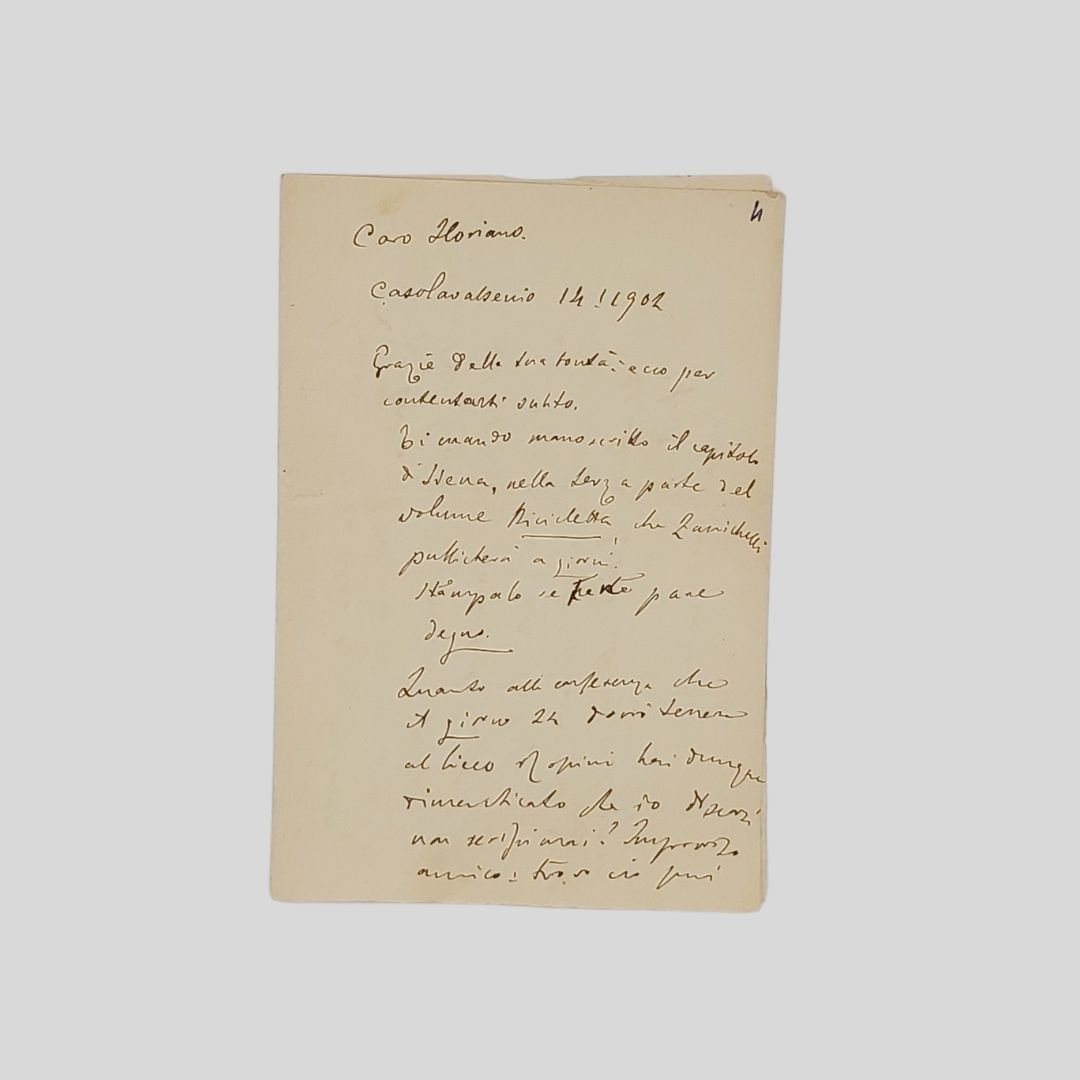 4
Caro Floriano.
Casolavalsenio 14 I 1902
Grazie della tua bontà: ecco per
contentarti subito.
Ti mando manoscritto il capitolo
di Siena, nella terza parte del
volume Bicicletta, che Zanichelli
pubblicherà a giorni.
Stampalo se te pare
degno.
Quanto alla conferenza che
il giorno 24 dovrò tenere
al liceo Rossini hai dunque
dimenticato che io discorsi
non scrissi mai? Improvviso
amico: trovo ciò più